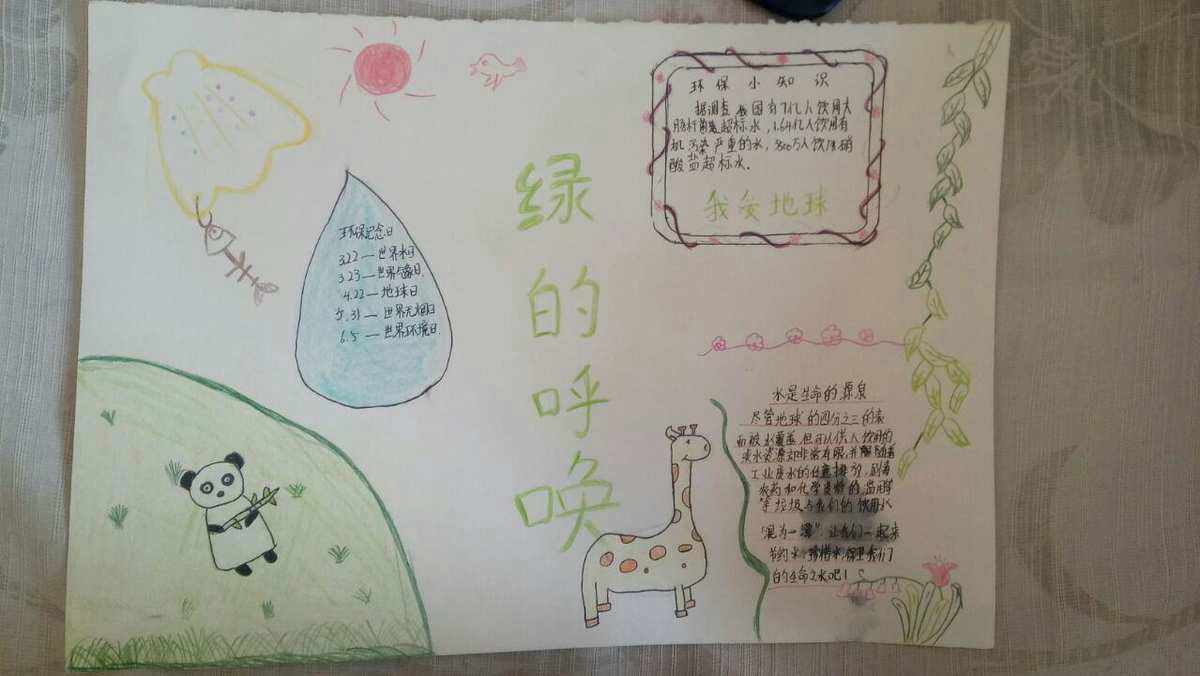 环保小知识
据调查我国有7亿人饮用大
肠杆菌超标水,1.64亿人饮用有
机污染严重的水,3500万人饮用硝
酸盐超标水.
我爱地球
环保纪念日
3.22—世界水日
3.23—世界气象日
4.22—地球日
5.31—世界无烟日
6.5—世界环境日
绿的呼唤
水是生命的源泉
尽管地球的四分之三的表
面被水覆盖,但可以供人饮用的
淡水资源却非常有限,并
工业废水的任意排方,
农药和化学 的
等垃圾与我们的饮用水
“混为一潭”让我们一起来
节约水 珍惜水,保卫我们
的生命之水吧!